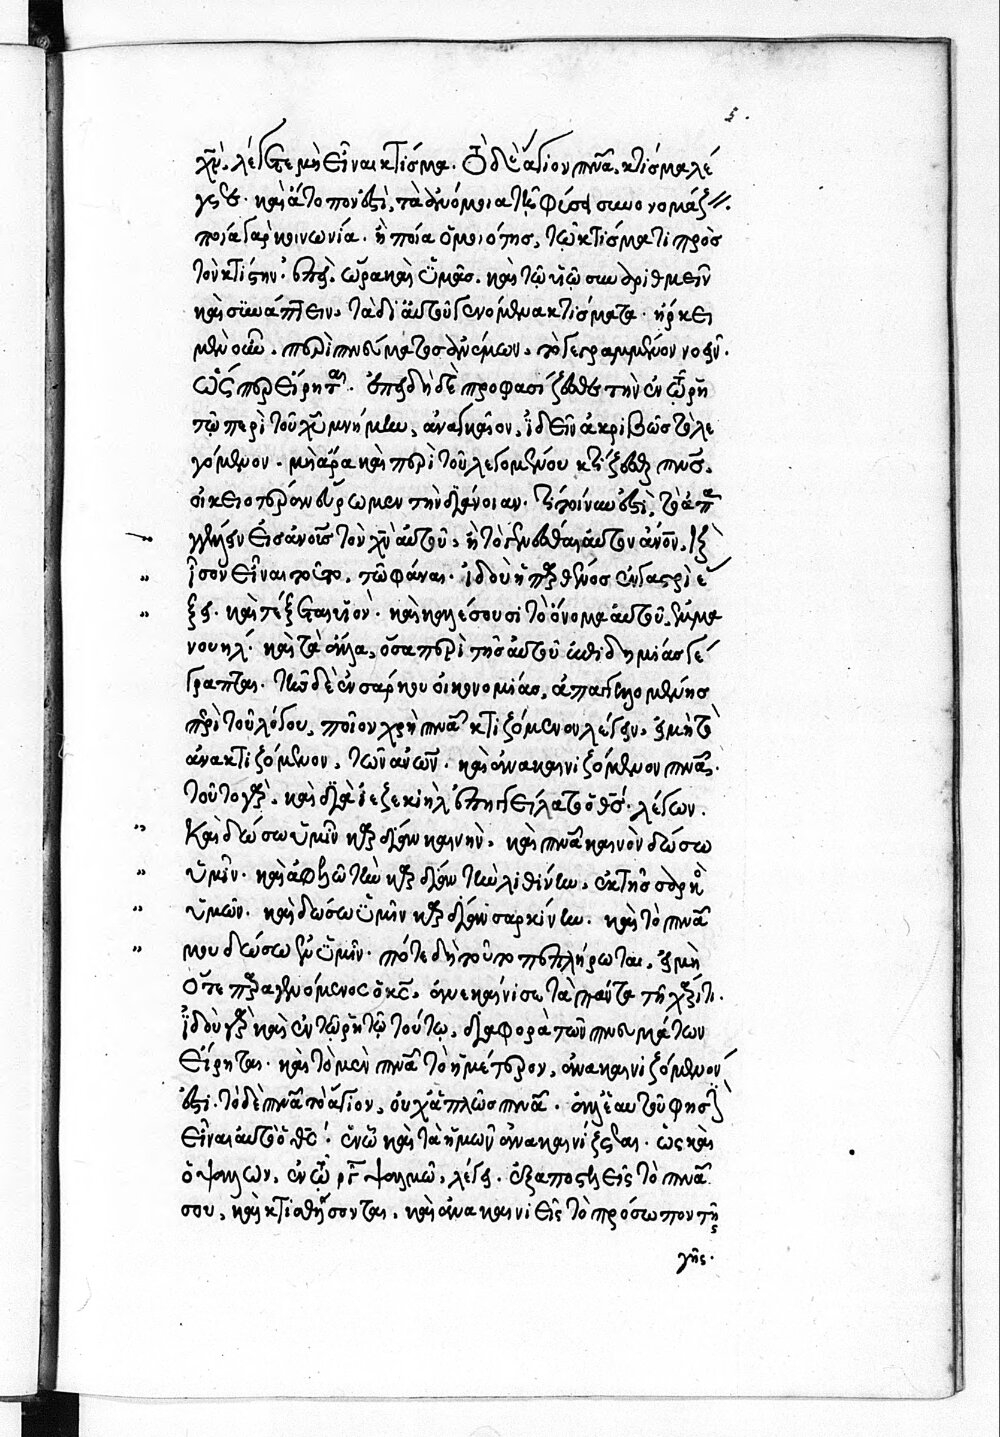 ξ.
χν̅. λέγετε μὴ εἶναι κτίσμα. τὸ δὲ ἅγιον πνα̅, κτίσμα λέ
γετε. καὶ ἄτοπον ἐστὶ, τὰ ἀνόμοια τῇ φύσει συνονομάζειν.
ποία γὰρ κοινωνία. ἢ ποία ὁμοιότης, τῷ κτίσματι πρὸς
τὸν κτίστην. ὥρα καὶ ὑμᾶς. καὶ τῷ υἱῷ συναριθμεῖν
καὶ συνάπτειν, τὰ δι' αὐτοῦ γενόμενα κτίσματα. ἤρκει
μὲν οὖν, περὶ πνεύματος ἀνέμων, τὸ γεγραμμένον νοεῖν.
ὡς προείρηται. ἐπειδὴ δὲ προφασίζεσθε τὴν ἐν τῷ ῥητῷ
περὶ τοῦ χυ̅ μνήμην, ἀναγκαῖον, ἰδεῖν ἀκριβῶς τὸ λε
γόμενον. μὴ ἄρα καὶ περὶ τοῦ λεγομένου κτίζεσθαι πνς̅.
οἰκειοτέραν εὕρωμεν τὴν διάνοιαν. τί τοίνυν ἐστὶ, τὸ ἀπαγ
γέλλειν εἰς ἀνους̅ τὸν χν̅ αὐτοῦ, ἢ τὸ γενέσθαι αὐτὸν ἀνον̅. ἐξ
ἴσου εἶναι τοῦτο, τῷ φάναι. ἰδοὺ ἡ παρθένος ἐν γαστρὶ ἕ
ξει. καὶ τέξεται υἱόν. καὶ καλέσουσι τὸ ὄνομα αὐτοῦ, ἐμμα
νουήλ. καὶ τὰ ἄλλα, ὅσα περὶ τῆς αὐτοῦ ἐπιδημίας γέ
γραπται. τῆς δὲ ἐνσάρκου οἰκονομίας, ἀπαγγελλομένης
περὶ τοῦ λόγου, ποῖον χρὴ πνα̅ κτιζόμενον λέγειν, εἰ μὴ τὸ
ἀνακτιζόμενον, τῶν ανων̅. καὶ ἀνακαινιζόμενον πνα̅.
τοῦτο γὰρ. καὶ διὰ ἰεζεκιὴλ ἐπηγγείλατο ὁ θς̅. λέγων.
Καὶ δώσω ὑμῖν καρδίαν καινὴν, καὶ πνα̅ καινὸν δώσω
ὑμῖν. καὶ ἀφελῶ τὴν καρδίαν τὴν λιθίνην, ἐκ τῆς σαρκὸς
ὑμῶν. καὶ δώσω ὑμῖν καρδίαν σαρκίνην. καὶ τὸ πνα̅
μου δώσω ἐν ὑμῖν. πότε δὴ τοῦτο πεπλήρωται. εἰ μὴ
ὅτε παραγενόμενος ὁ κς̅, ἀνεκαίνισε τὰ πάντα τῇ χάριτι.
Ἰδοὺ γὰρ καὶ ἐν τῷ ῥητῷ τούτῳ, διαφορὰ τῶν πνευμάτων
εἴρηται. καὶ τὸ μὲν πνα̅ τὸ ἡμέτερον, ἀνακαινιζόμενόν
ἐστι. τὸ δὲ πνα̅ τὸ ἅγιον, οὐχ ἁπλῶς πνα̅. ἀλλ' ἑαυτοῦ φησὶν
εἶναι αὐτὸ ὁ θς̅. ἐν ᾧ καὶ τὰ ἡμῶν ἀνακαινίζεται. ὡς καὶ
ὁ ψάλλων, ἐν τῷ ργ̅ ψαλμῷ, λέγει. ἐξαποστελεῖς τὸ πνα̅
σου, καὶ κτισθήσονται. καὶ ἀνακαινιεῖς τὸ πρόσωπον τῆς
γῆς.